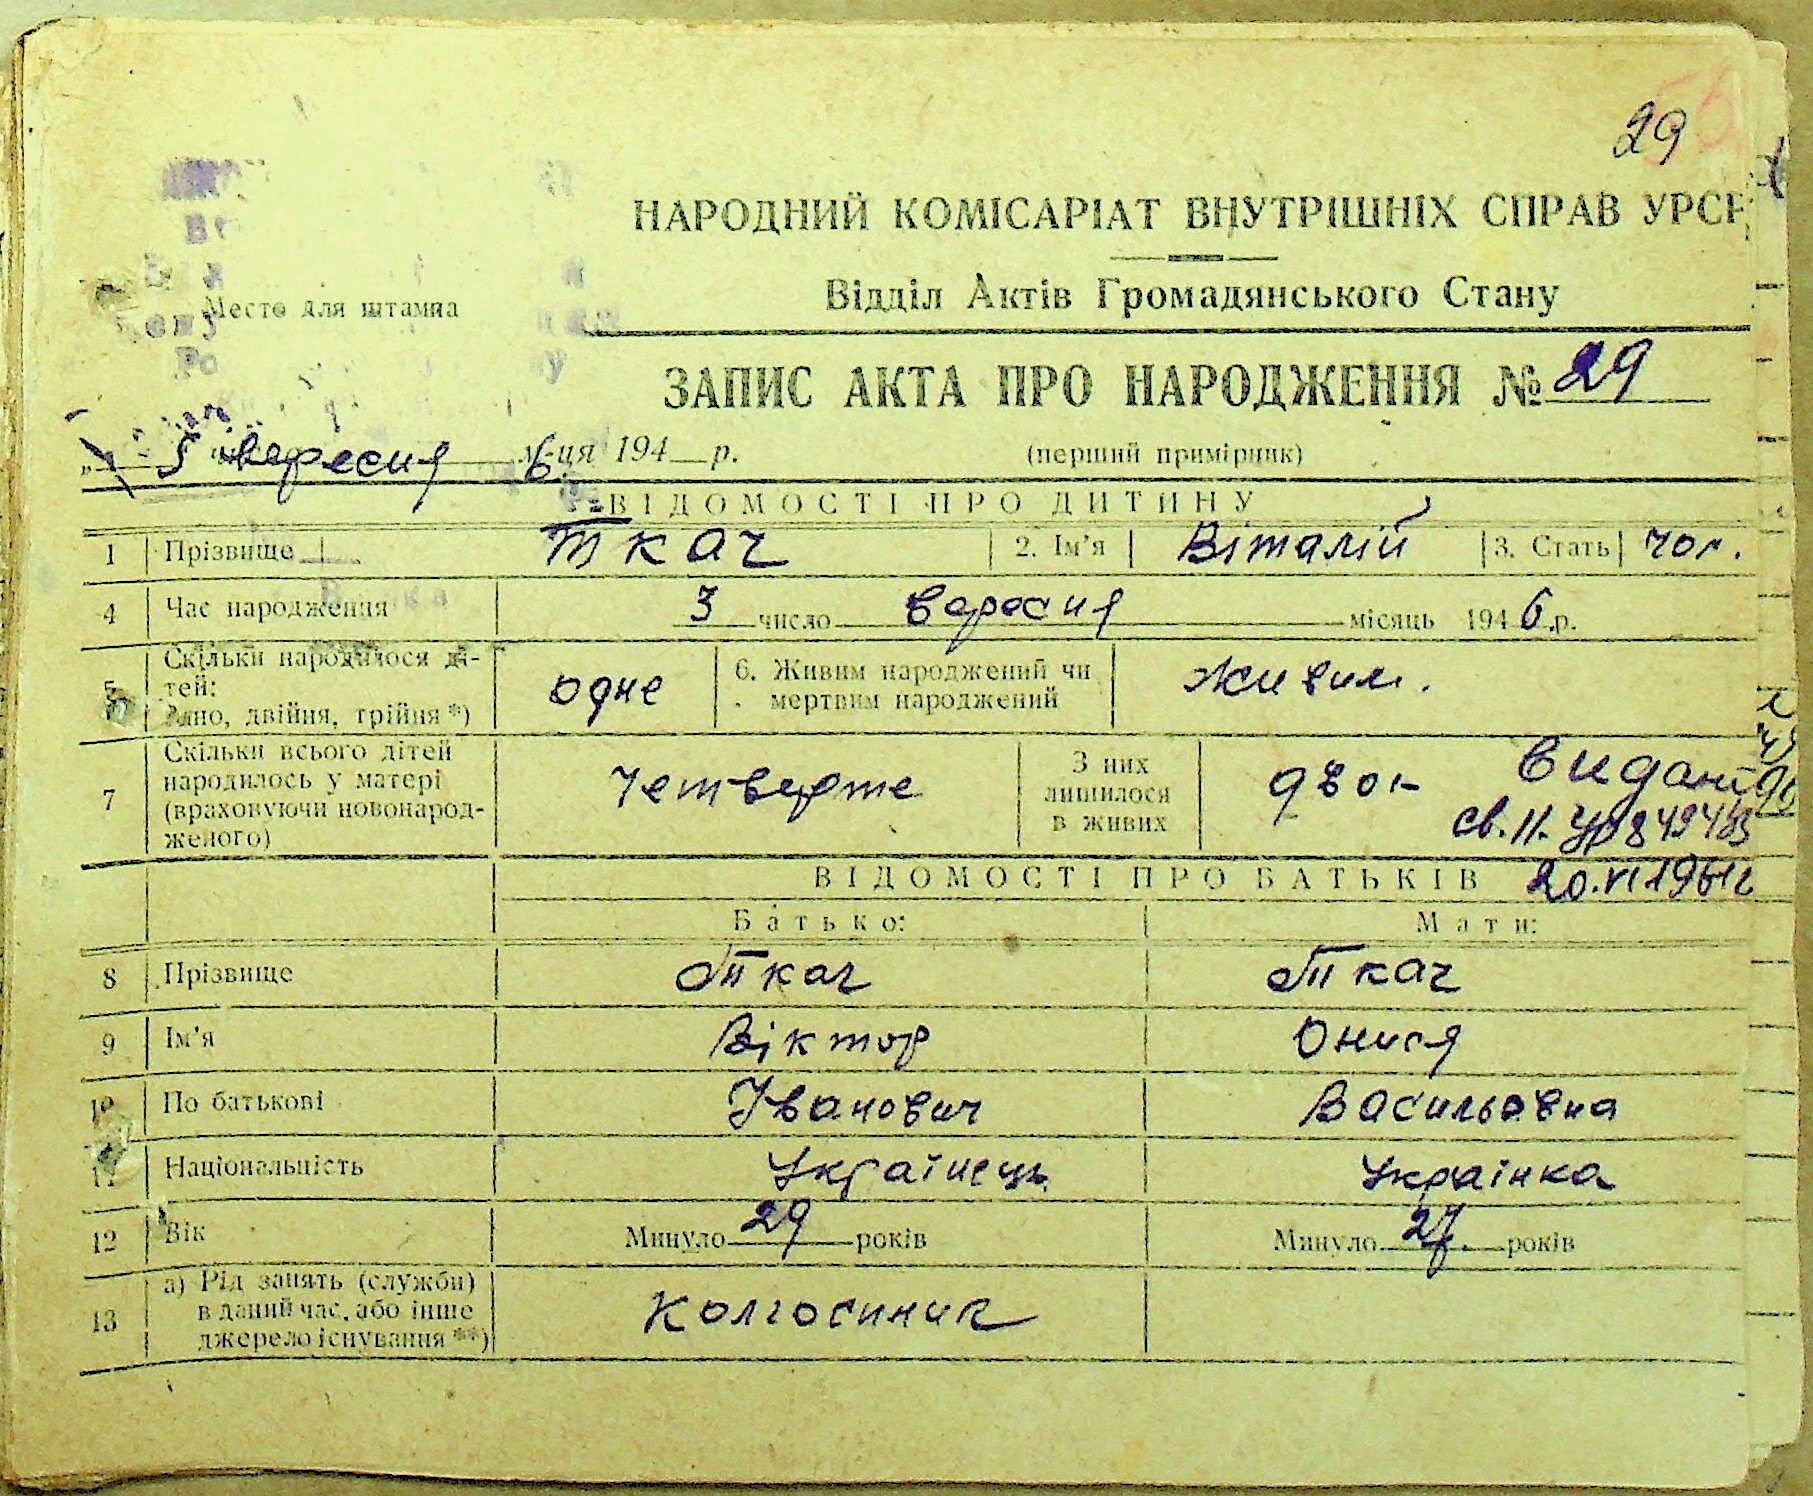 29
НАРОДНИЙ КОМІСАРІАТ ВНУТРІШНІХ СПРАВ УРСР
Відділ Актів Громадянського Стану
Место для штампа
ЗАПИС АКТА ПРО НАРОДЖЕННЯ № 29
5 вересня м-ця 194 6 р.
(перший примірник)
ВІДОМОСТІ ПРО ДИТИНУ
1 Прізвище Ткач 2. Ім'я Віталій 3. Стать чол.
4 Час народження 3 число вересня місяць 194 6 р.
5 Скільки народилося ді-
тей:
одно, двійня, трійня *) одне 6. Живим народжений чи
мертвим народжений живим.
7 Скільки всього дітей
народилось у матері
(враховуючи новонарод-
женого) четверте З них
лишилося
в живих двох
Видані
св. н.
20.VI 1961г
ВІДОМОСТІ ПРО БАТЬКІВ
Батько: Мати:
8 Прізвище Ткач Ткач
9 Ім'я Віктор Онися
10 По батькові Іванович Васильовна
11 Національність Українець Українка
12 Вік Минуло 29 років Минуло 27. років
13 а) Рід занять (служби)
в даний час, або інше
джерело існування **) Колгоспник